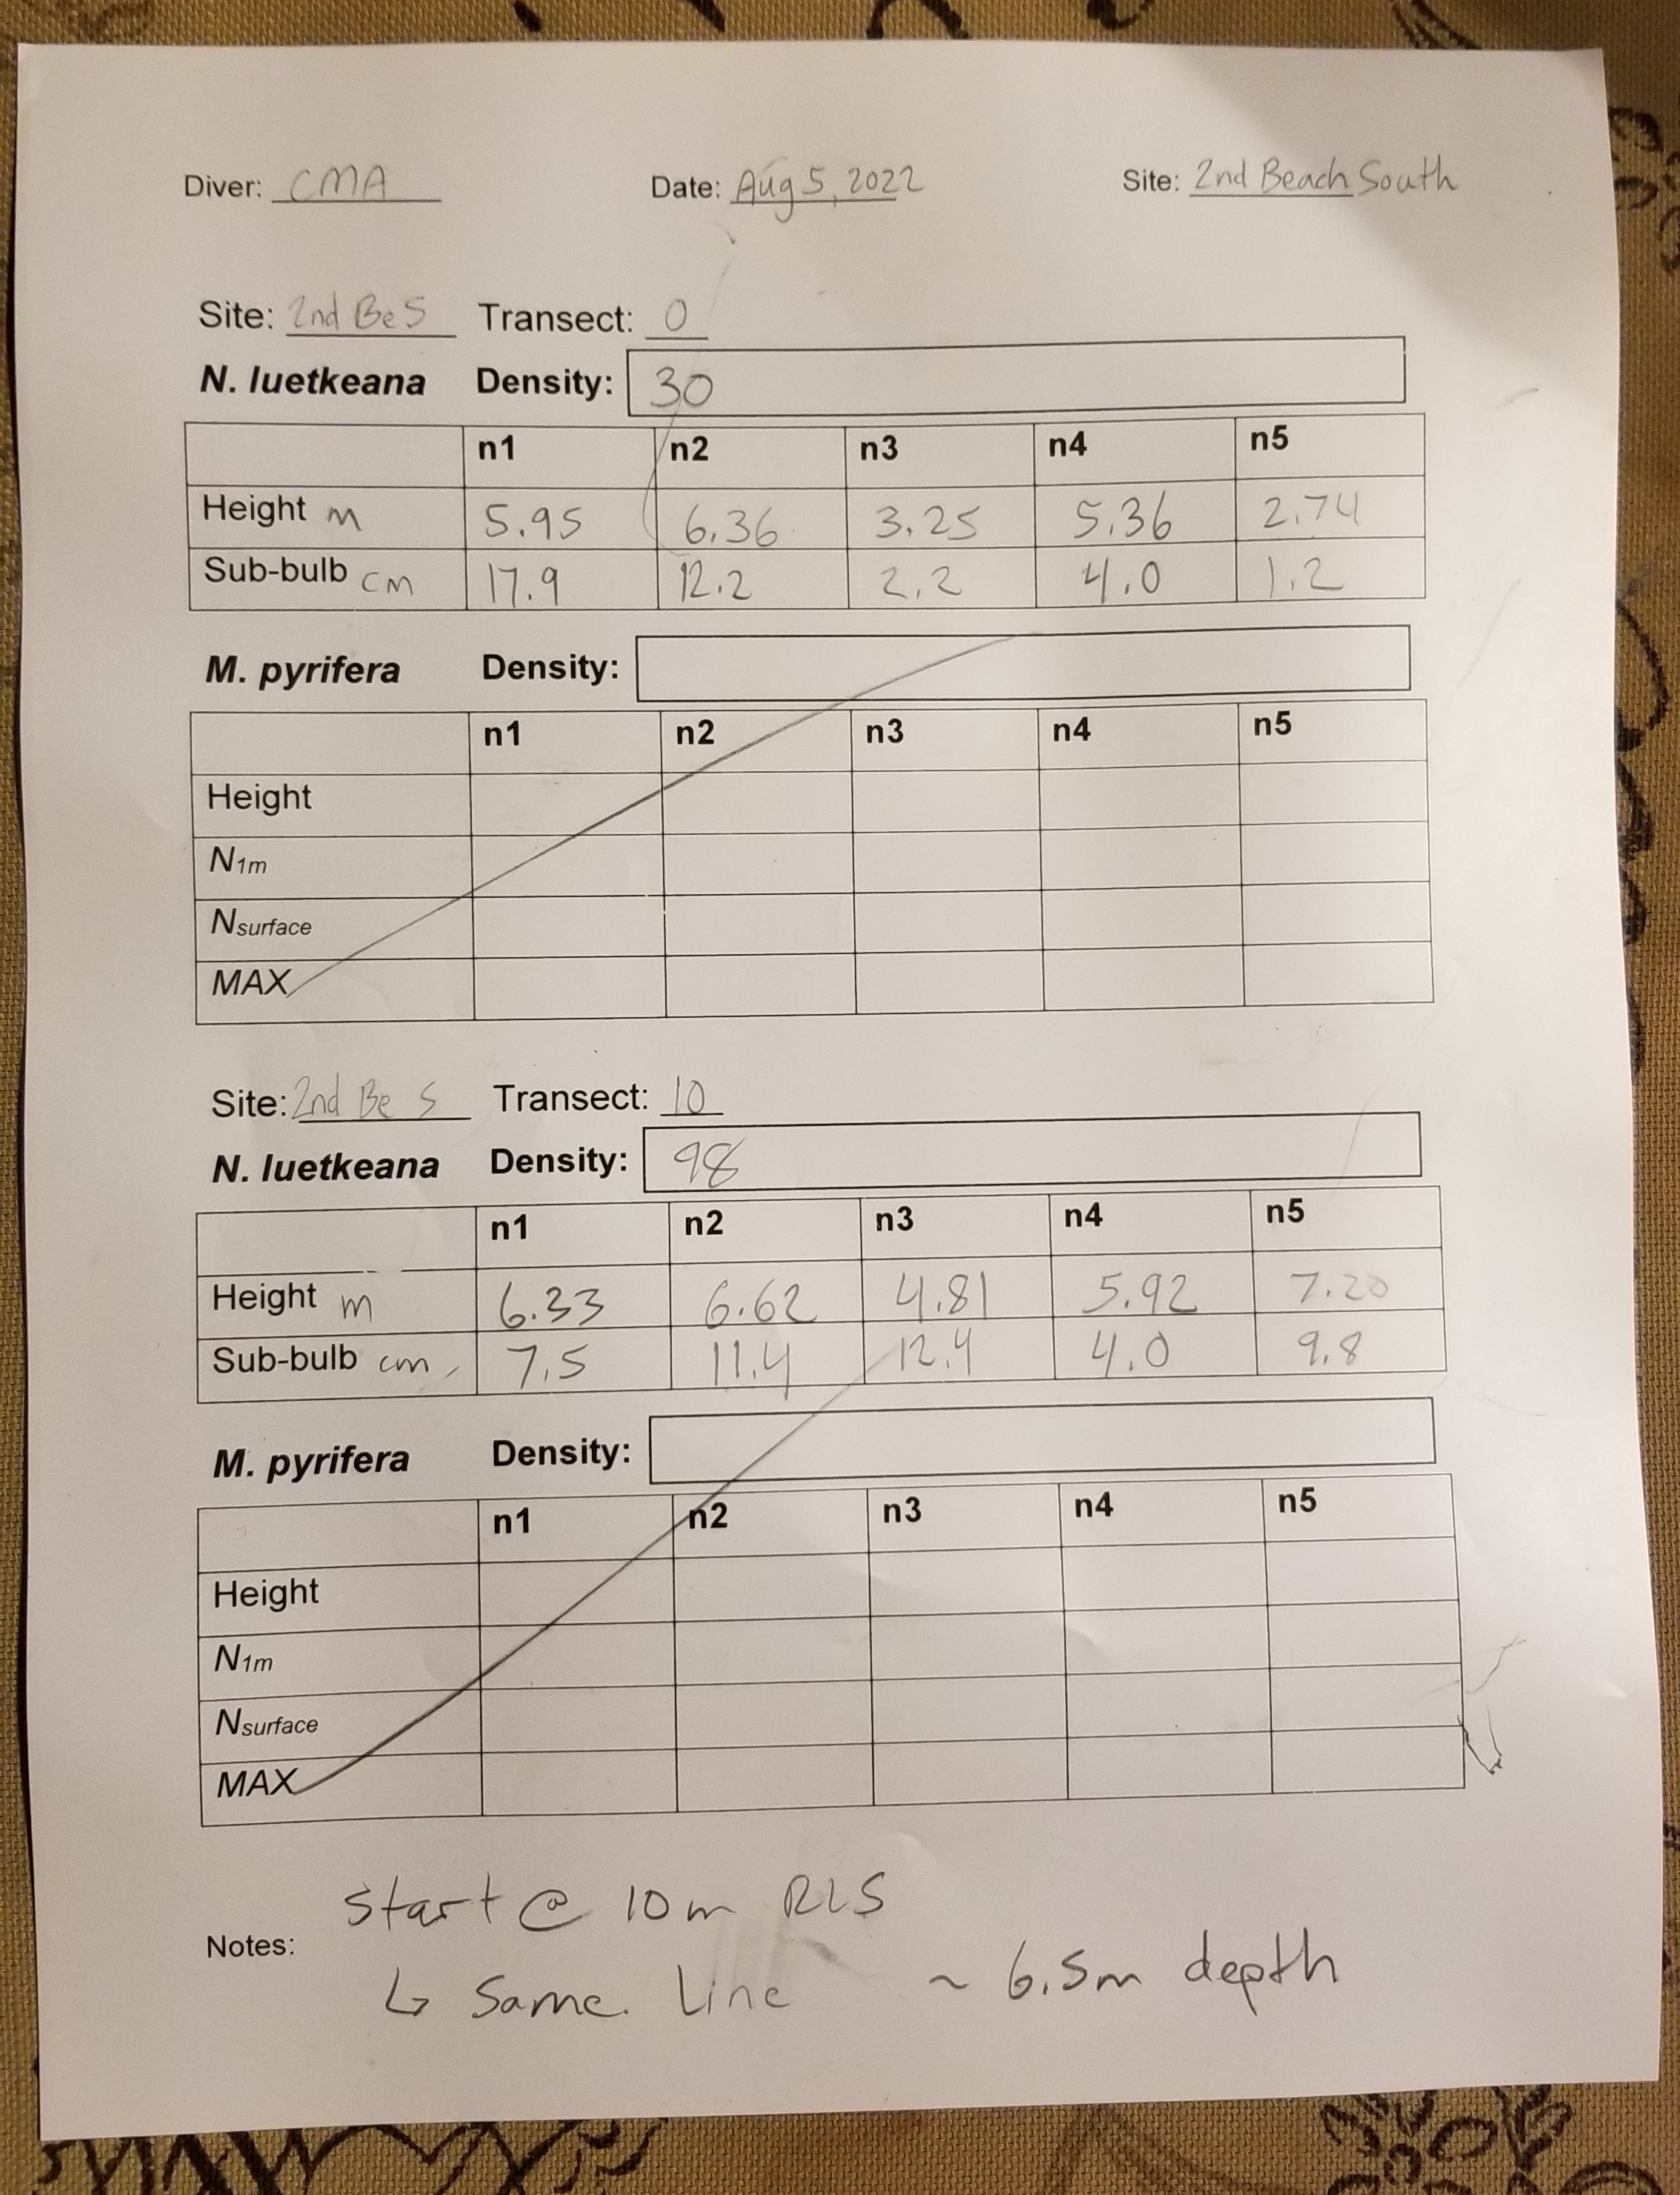 Diver: CMA Date: Aug 5, 2022 Site: 2nd Beach South
Site: 2nd Be S Transect: 0
N. luetkeana Density: 30
n1 n2 n3 n4 n5
Height m 5.95 6.36 3.25 5.36 2.74
Sub-bulb cm 17.9 12.2 2.2 4.0 1.2
M. pyrifera Density:
n1 n2 n3 n4 n5
Height
N1m
Nsurface
MAX
Site: 2nd Be S Transect: 10
N. luetkeana Density: 98
n1 n2 n3 n4 n5
Height m 6.33 6.62 4.81 5.92 7.20
Sub-bulb cm 7.5 11.4 12.4 4.0 9.8
M. pyrifera Density:
n1 n2 n3 n4 n5
Height
N1m
Nsurface
MAX
Notes: Start @ 10m RLS
↳ Same line ~ 6.5m depth